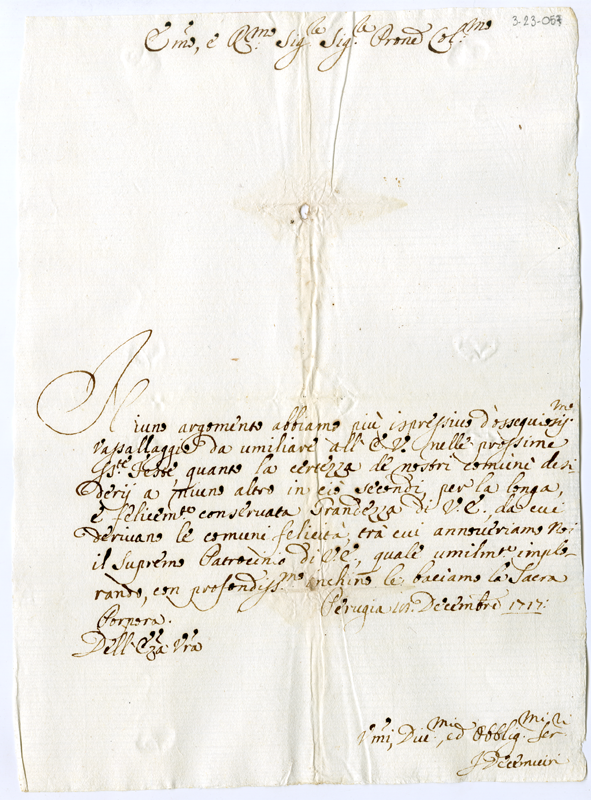 3-23-057
Em̃o, e R.mo Sig.re Sig.re Prone Col.mo
Niuno argomento abbiamo più espressivo d'ossequiosis.mo
vassallaggio da umiliare all'E.V. nelle prossime
SS.te Feste quanto la certezza de nostri comuni desi
derij a niuno altro in ciò secondi, per la longa,
e felicem.te conservata Grandezza di V.E., da cui
derivano le comuni felicità, trà cui annoveriamo Noi
il Supremo Patrocinio di V.E, quale umilm.te implo-
rando, con profondiss.mo inchino le baciamo la Sacra
Porpora. Perugia Decembre 1717:
Dell'E.za Vra
Vmi, Div.mi, ed Obblig.mi Ser.ri
I Decemviri